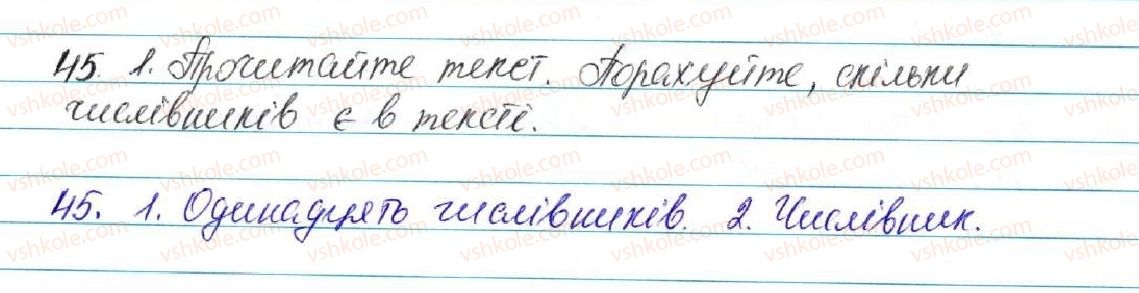 45. 1. Прочитайте текст. Порахуйте, скільки
числівників є в тексті.
45. 1. Одинадцять числівників. 2. Числівник.